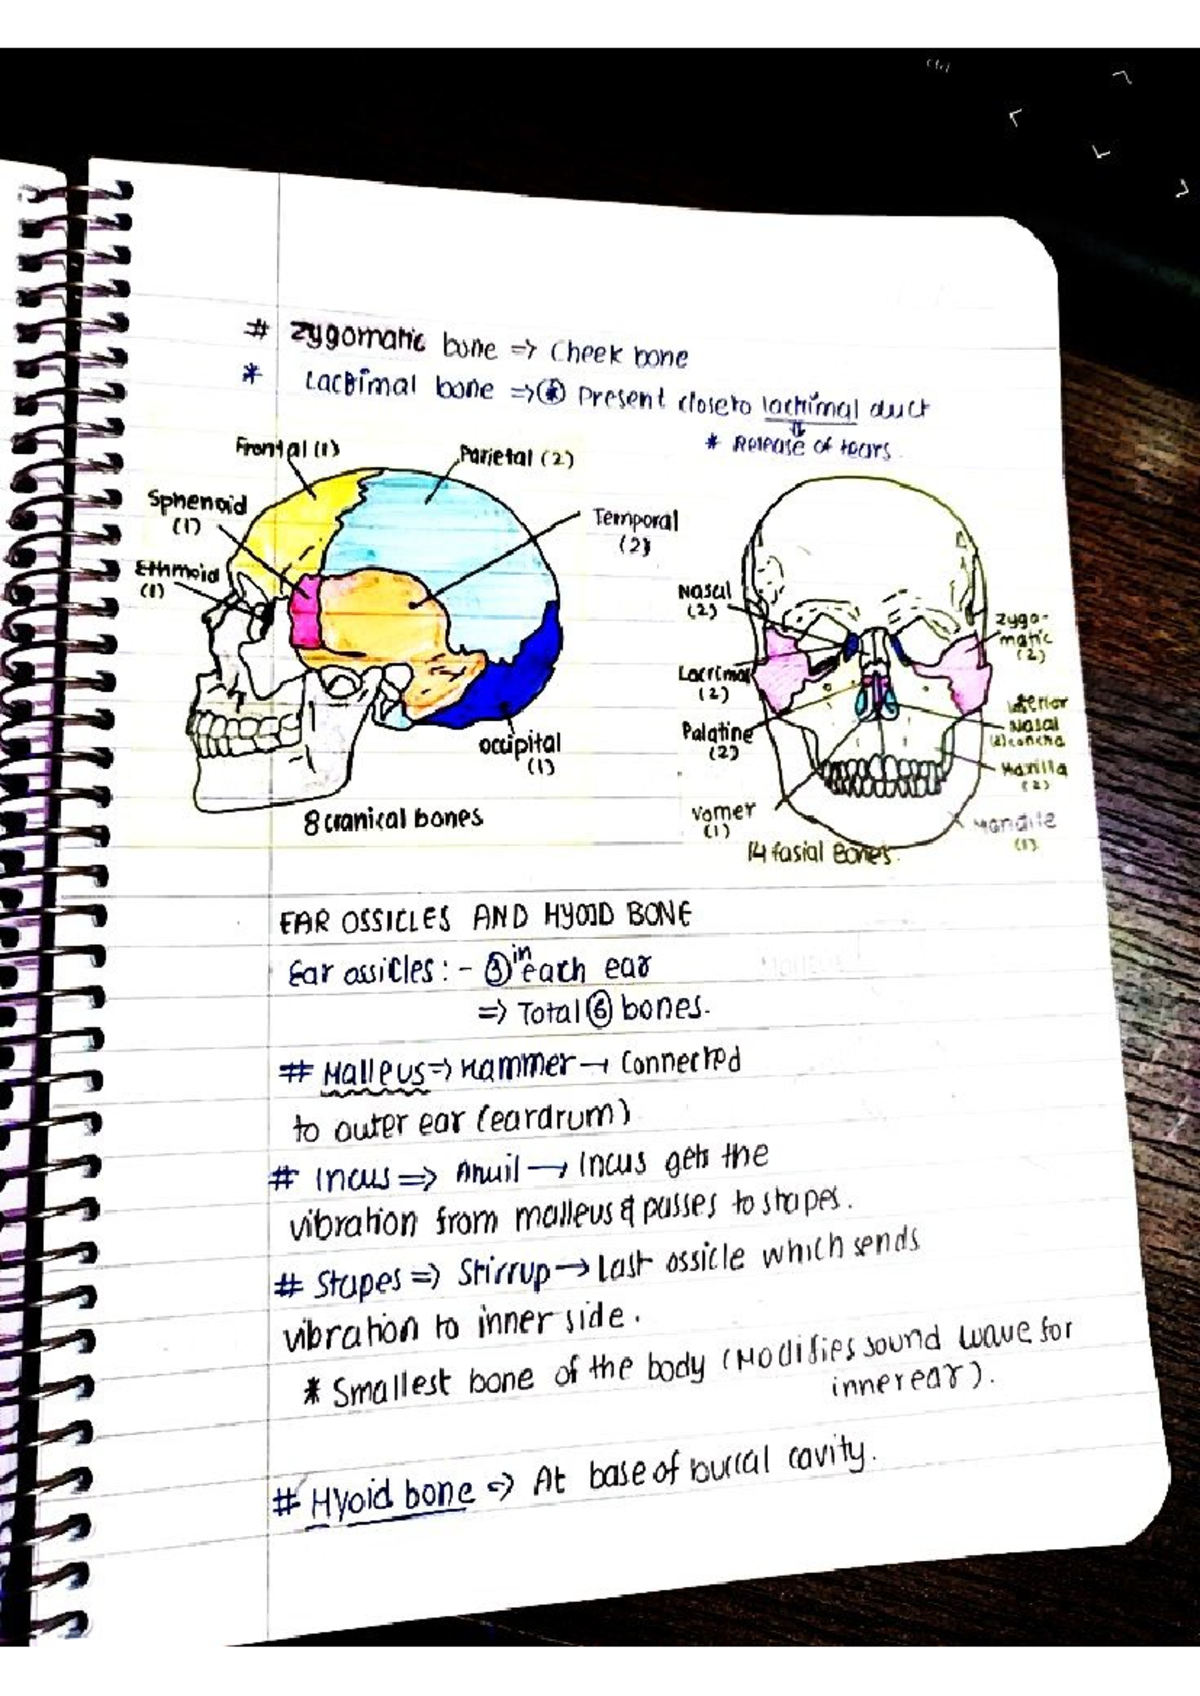 # Zygomatic bone => Cheek bone
* Lacrimal bone => * Present close to lacrimal duct
⇓
* Release of tears.
Frontal (1)
Parietal (2)
Sphenoid
(1)
Temporal
(2)
Ethmoid
(1)
occipital
(1)
8 cranical bones
Nasal
(2)
zygo-
matic
(2)
Lacrimal
(2)
Inferior
Nasal
(2) concha
Palatine
(2)
Maxilla
(2)
Vomer
(1)
Mandile
(1)
14 fasial Bones.
EAR OSSICLES AND HYOID BONE
Ear ossicles :- 3 in each ear
=> Total 6 bones.
# Malleus => Hammer → Connected
to outer ear (eardrum)
# Incus => Anvil → Incus gets the
vibration from malleus & passes to stapes.
# Stapes => Stirrup → Last ossicle which sends
vibration to inner side.
* Smallest bone of the body (Modifies sound wave for
inner ear).
# Hyoid bone => At base of buccal cavity.